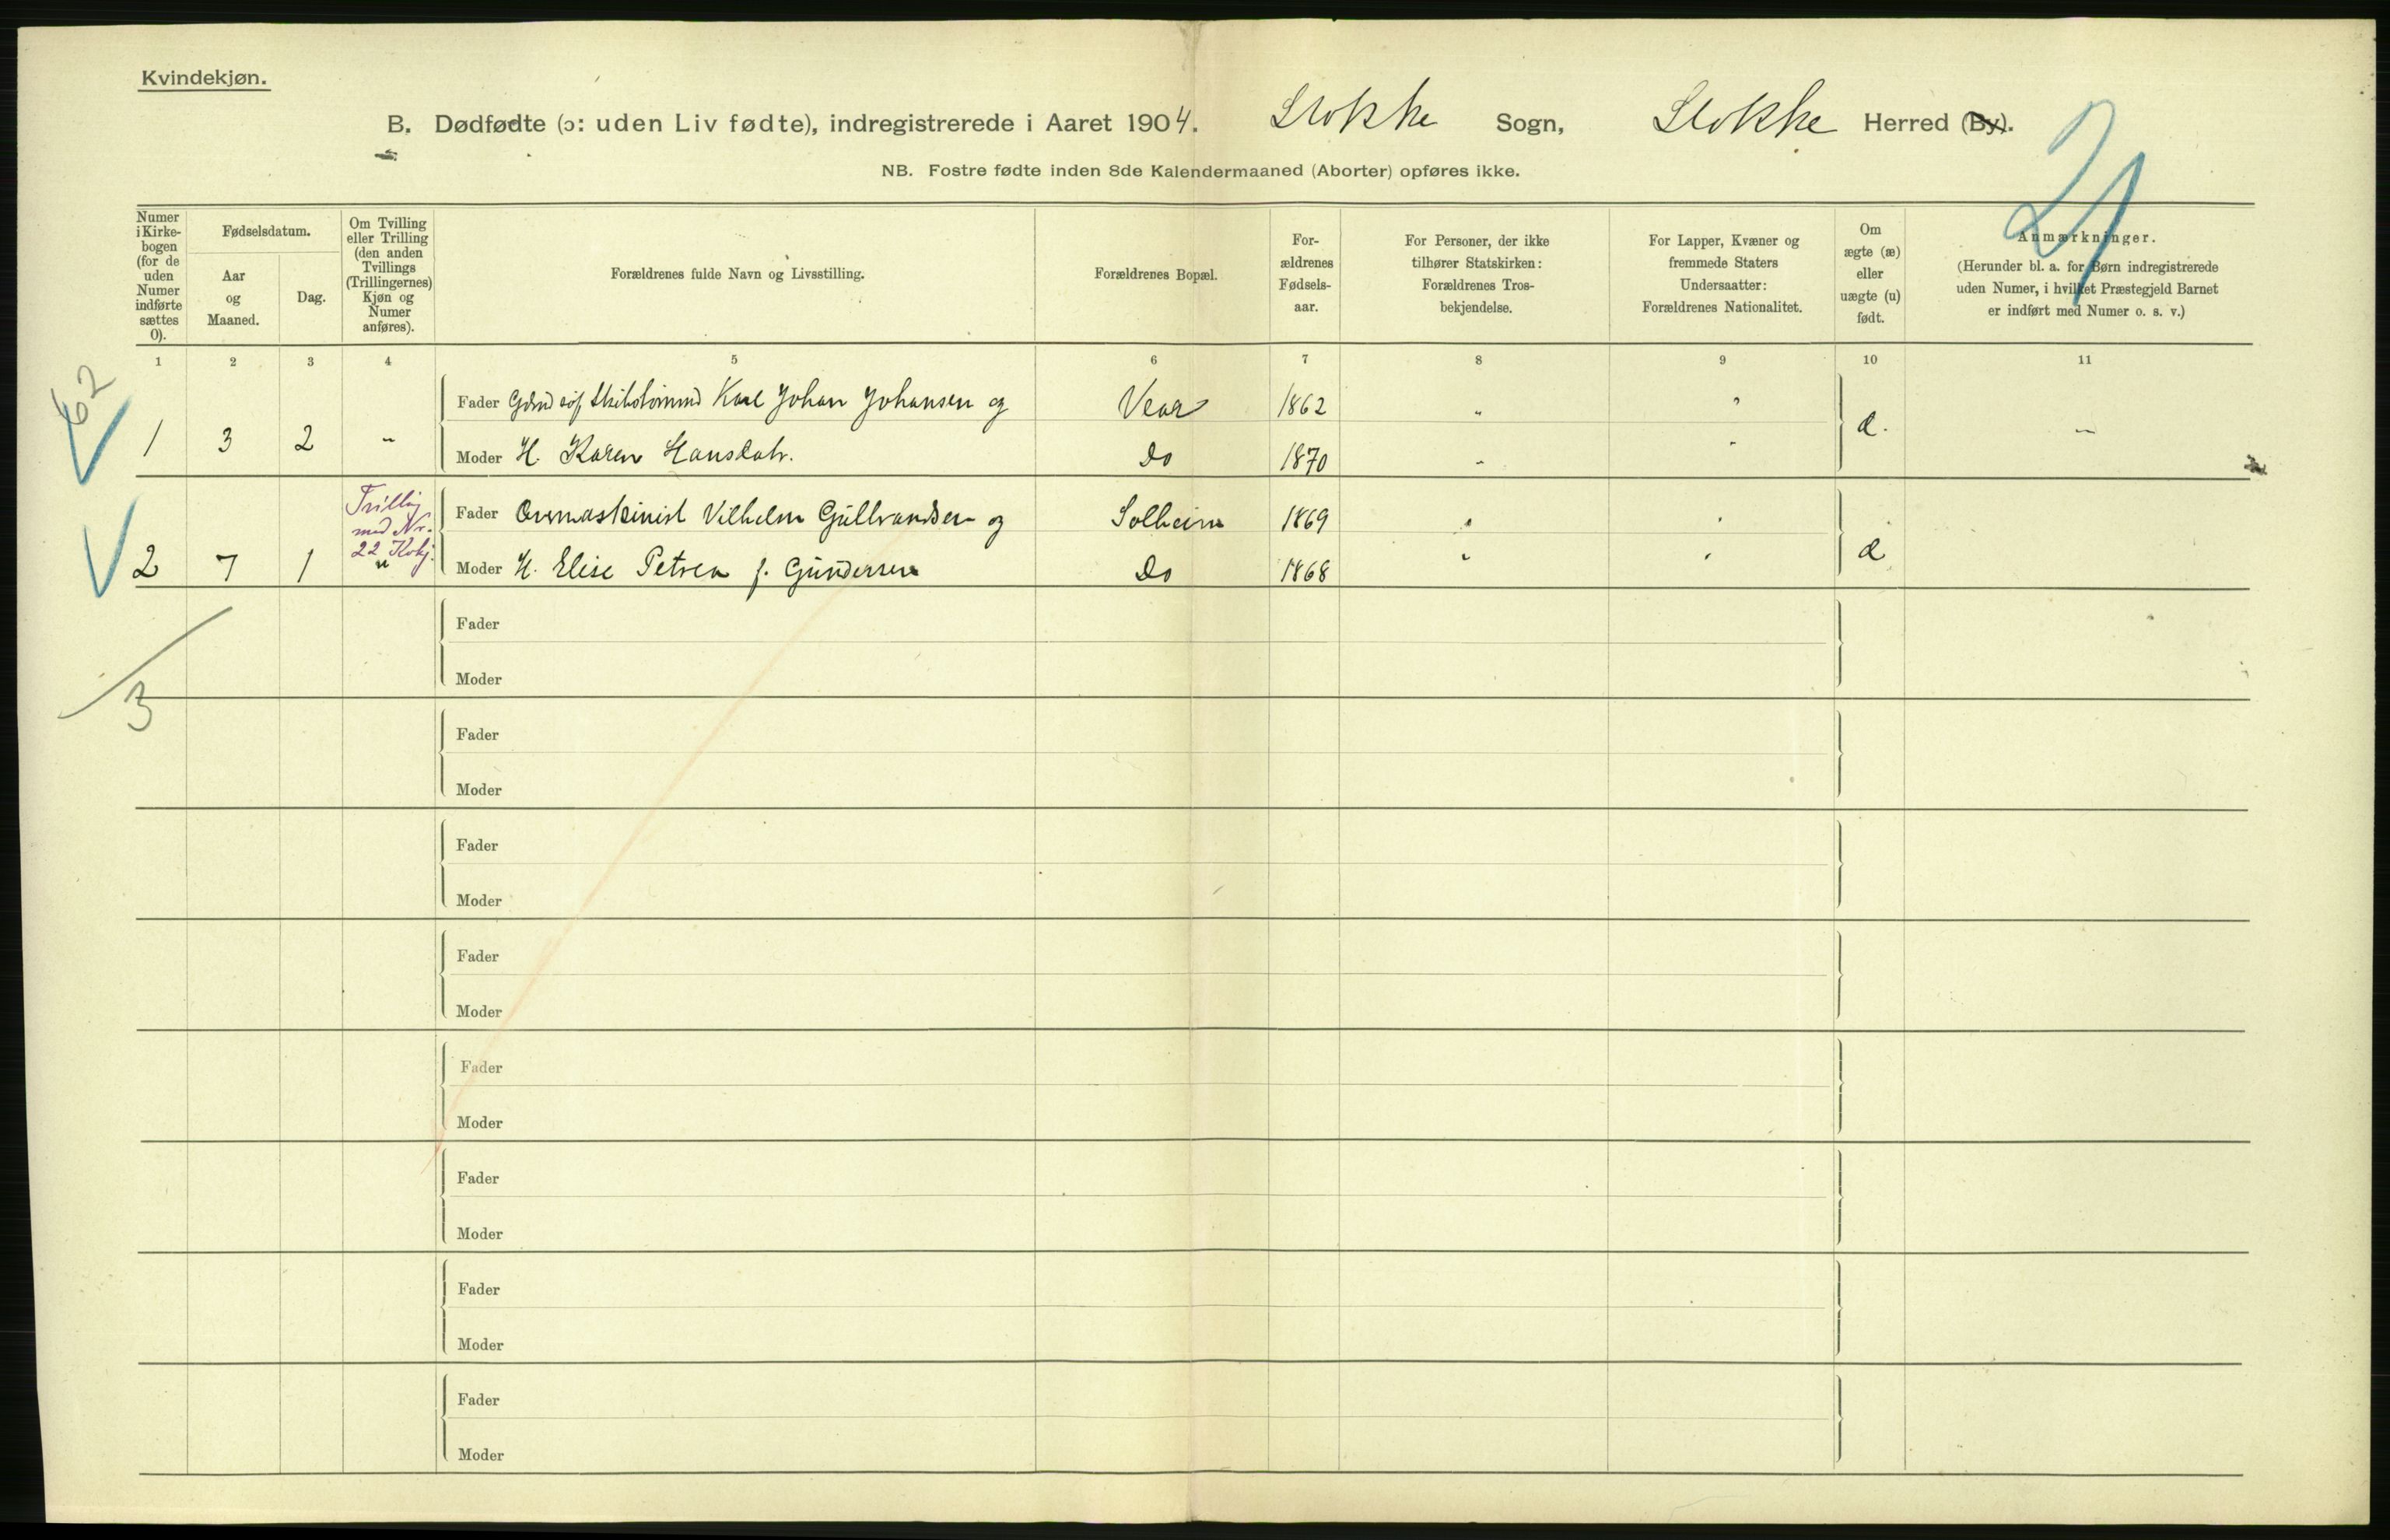 Kvindekjøn.
B. Dødfødte (ɔ: uden Liv fødte), indregistrerede i Aaret 1904. Stokke Sogn, Stokke Herred (By).
NB. Fostre fødte inden 8de Kalendermaaned (Aborter) opføres ikke.
21
Numer
i Kirke-
bogen
(for de
uden
Numer
indførte
sættes
0).
Fødselsdatum.
Aar
og
Maaned.
Dag.
Om Tvilling
eller Trilling
(den anden
Tvillings
(Trillingernes)
Kjøn og
Numer
anføres).
Forældrenes fulde Navn og Livsstilling.
Forældrenes Bopæl.
For-
ældrenes
Fødsels-
aar.
For Personer, der ikke
tilhører Statskirken:
Forældrenes Tros-
bekjendelse.
For Lapper, Kvæner og
fremmede Staters
Undersaatter:
Forældrenes Nationalitet.
Om
ægte (æ)
eller
uægte (u)
født.
Anmærkninger.
(Herunder bl. a. for Børn indregistrerede
uden Numer, i hvilket Præstegjeld Barnet
er indført med Numer o. s. v.)
1 2 3 4 5 6 7 8 9 10 11
62
Fader Karl Johan Johansen og Vear 1862 " "
1 3 2 " æ. "
Moder H. Karen Hansdatr. do 1870 " "
Trilling
med Nr.
22 Kvkj.
Fader Vilhelm Gullvandsen og Solheim 1869 " "
2 7 1 " æ
Moder H. Elise Petrea f. Gundersen do 1868 " "
Fader
Moder
3
Fader
Moder
Fader
Moder
Fader
Moder
Fader
Moder
Fader
Moder
Fader
Moder
Fader
Moder